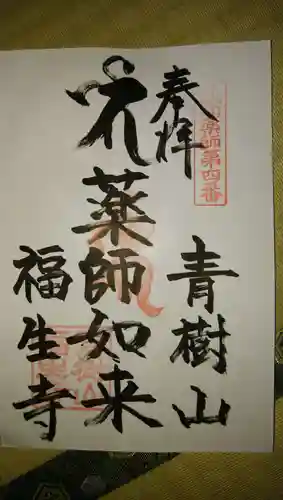 奉拝
薬師第四番
薬師如来
青樹山
福生寺